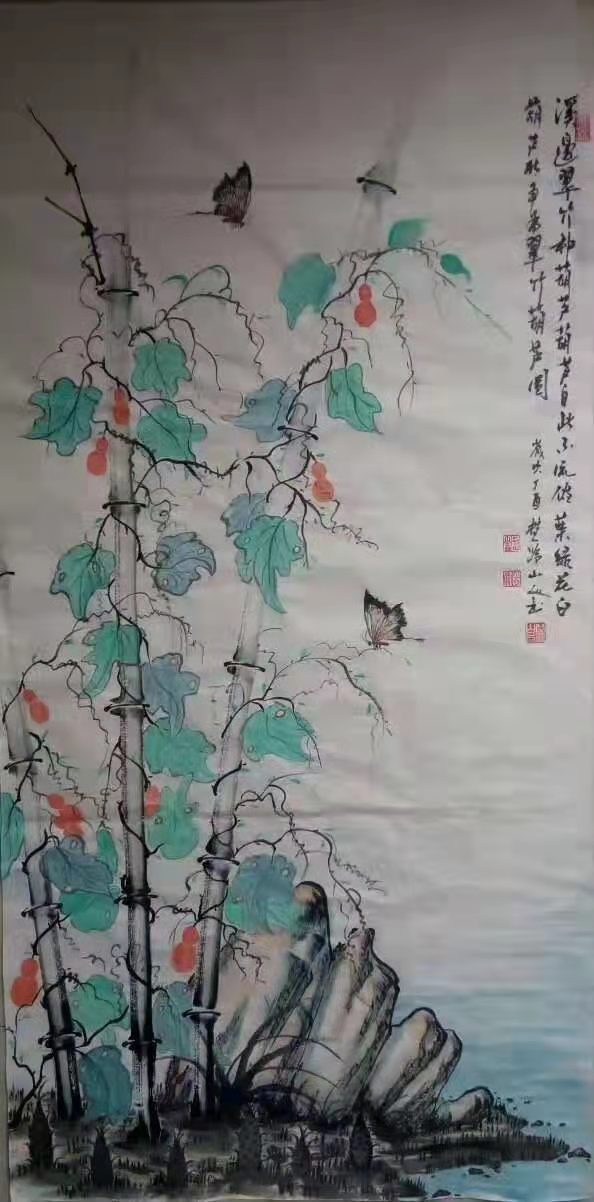 溪邊翠竹种葫芦葫芦自此不流俗葉緑花白
葫芦翠竹葫芦图
歲次丁酉楚山人